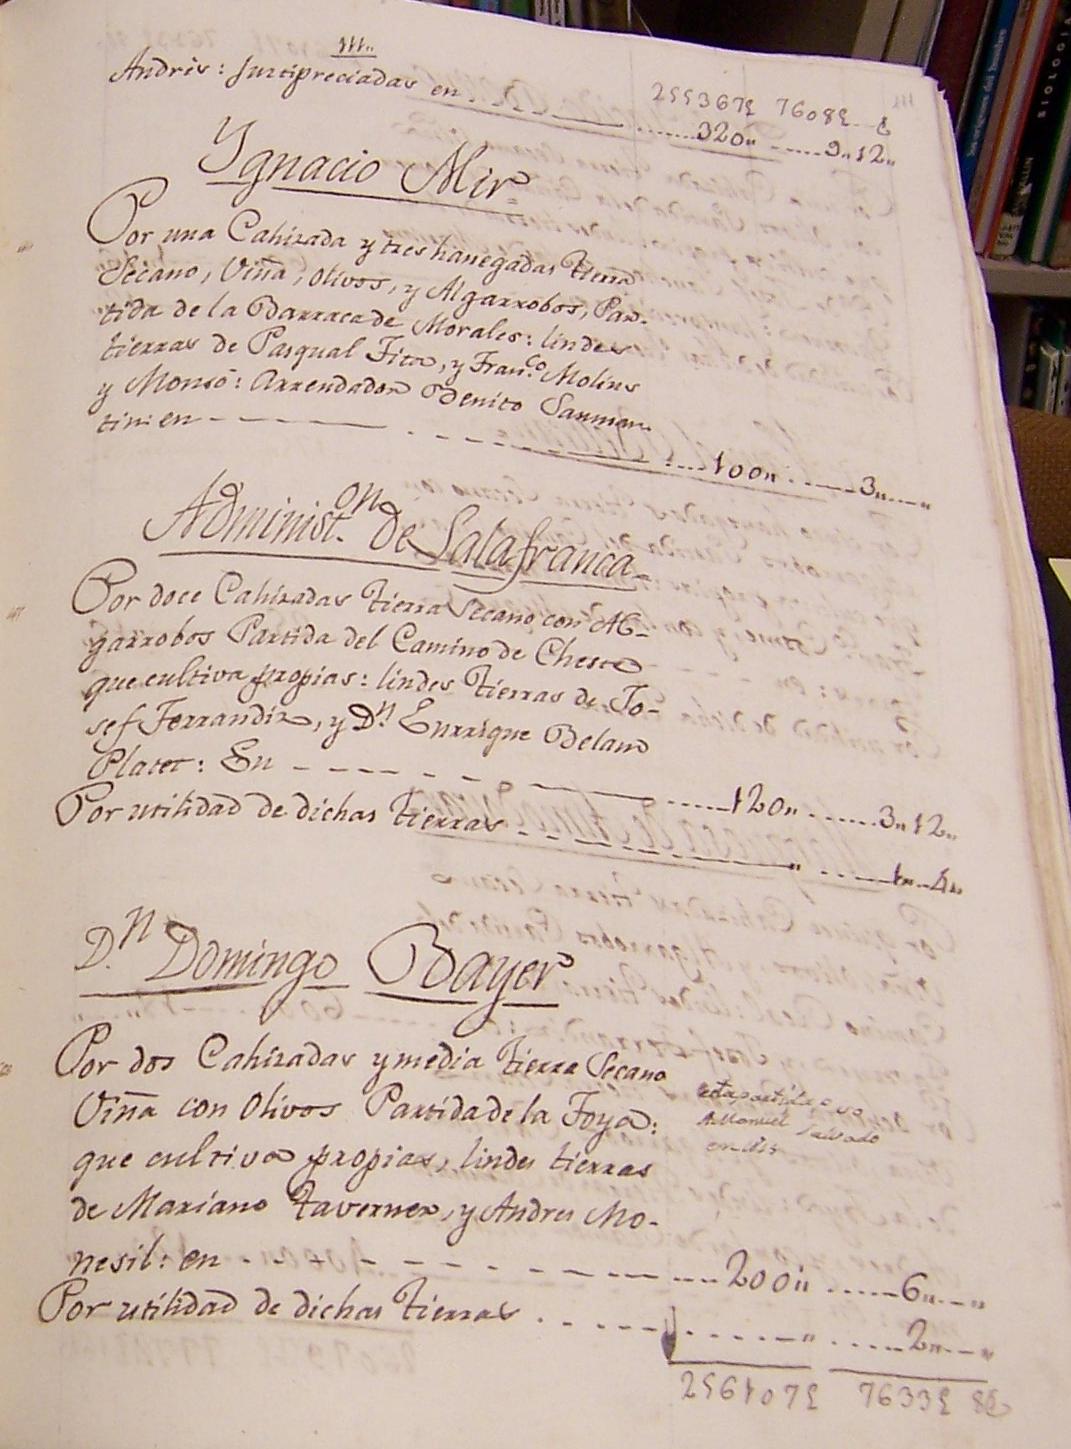 111.,
Andrés: justipreciadas en 320,, 9,,12,,
Ygnacio Mir
Por una Cahizada y tres hanegadas tierra
Secano, Viña, olivos, y Algarrobos, Par-
tida de la Barraca de Morales: lindes
tierras de Pasqual Fita, y Fran.co Molins
y Monsó: Arrendador Benito Sanmar-
tin: en 100,, 3,,
Administ.on de Salafranca
Por doce Cahizadas tierra Secano con Al-
garrobos Partida del Camino de Cheste
que cultiva propias: lindes tierras de Jo-
sef Ferrandiz, y Dn Enrrique Beland
Plater: En 120,, 3,,12,,
Por utilidad de dichas tierras 1,, 4,,
D.n Domingo Bayer
Por dos Cahizadas y media tierra Secano
Viña con olivos Partida de la Foya:
que cultiva propias, lindes tierras
de Mariano Taverner, y Andres Mo-
nesil: en 200,, 6,,
Por utilidad de dichas tierras 2,,
esta partida
Manuel Salvado